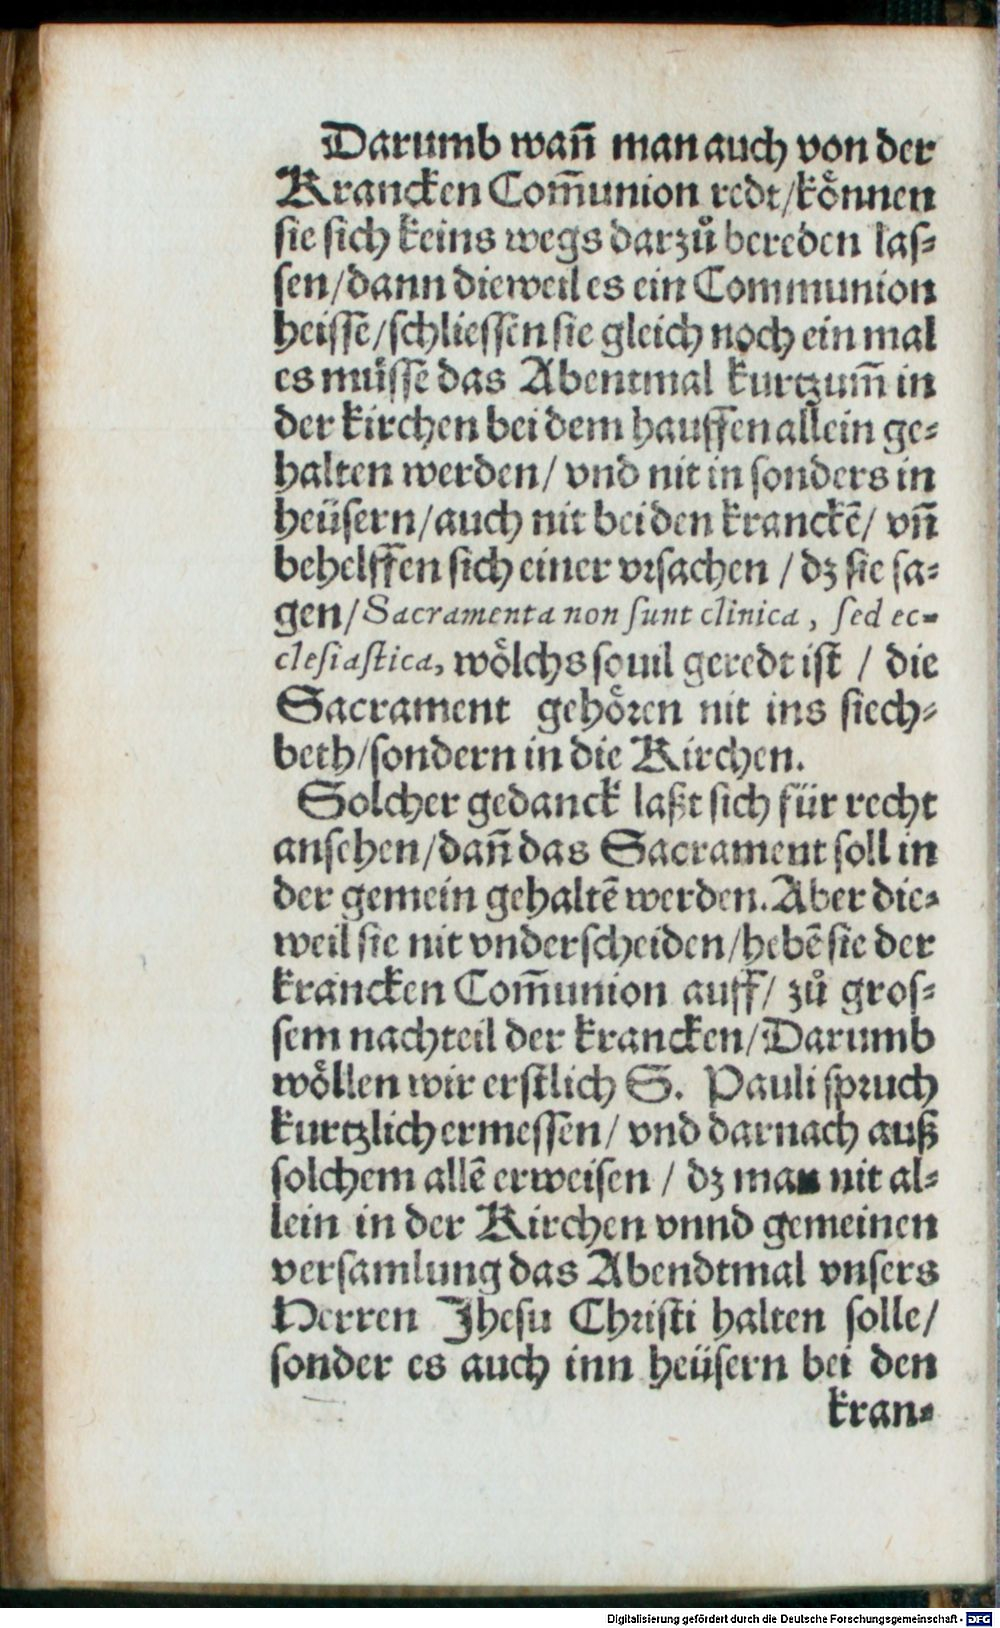 Darumb wañ man auch von der
Krancken Com̃union redt/koͤnnen
sie sich keins wegs darzuͦ bereden las⸗
sen/dann dieweil es ein Communion
heissẽ/schliessen sie gleich noch ein mal
es muͤssẽ das Abentmal kurtzum̃ in
der kirchen bei dem hauffen allein ge⸗
halten werden/ vnd nit in sonders in
heüsern/auch nit bei den kranckẽ/ vñ
behelffen sich einer vrsachen / dz sie sa⸗
gen/Sacramenta non sunt clinica, sed ec⸗
clesiastica, woͤlchs souil geredt ist / die
Sacrament gehoͤren nit ins siech⸗
beth/sondern in die Kirchen.
Solcher gedanck laßt sich für recht
ansehen/dañ das Sacrament soll in
der gemein gehaltẽ werden. Aber die⸗
weil sie nit vnderscheiden/hebẽ sie der
krancken Com̃union auff/ zuͦ gros⸗
sem nachteil der krancken/Darumb
woͤllen wir erstlich S. Pauli spruch
kurtzlich ermessen/ vnd darnach auß
solchem allẽ erweisen / dz man nit al⸗
lein in der Kirchen vnnd gemeinen
versamlung das Abendtmal vnsers
Herren Jhesu Christi halten solle/
sonder es auch inn heüsern bei den
kran⸗
Digitalisierung gefördert durch die Deutsche Forschungsgemeinschaft - DFG